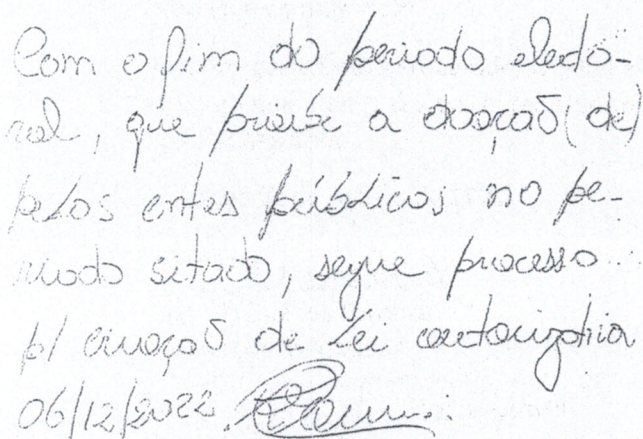 Com o fim do período eleito-
ral, que proíbe a doação (de)
pelos entes públicos no pe-
ríodo sitado, segue processo
p/ criação de Lei autorizativa
06/12/2022